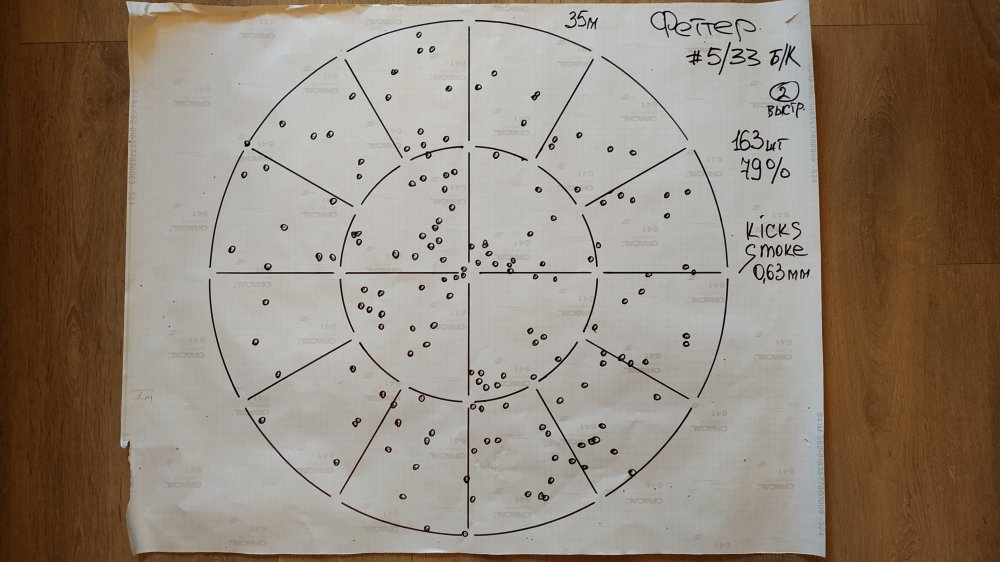 35м
Феттер
#5/33 Б/К
2
выстр.
163шт
79%
Kicks
Smoke
0,63мм
1м